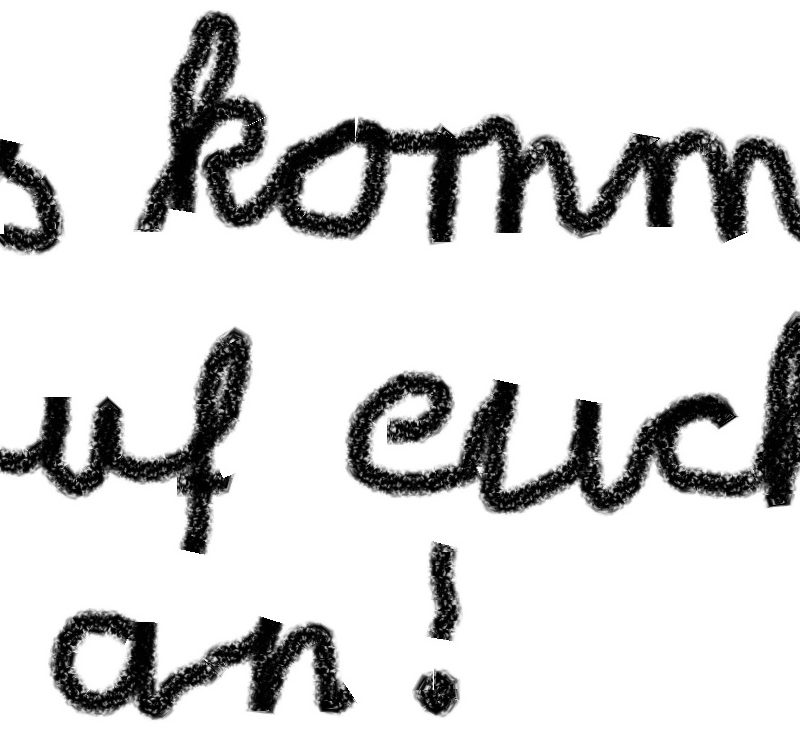 s komm
uf euch
an!